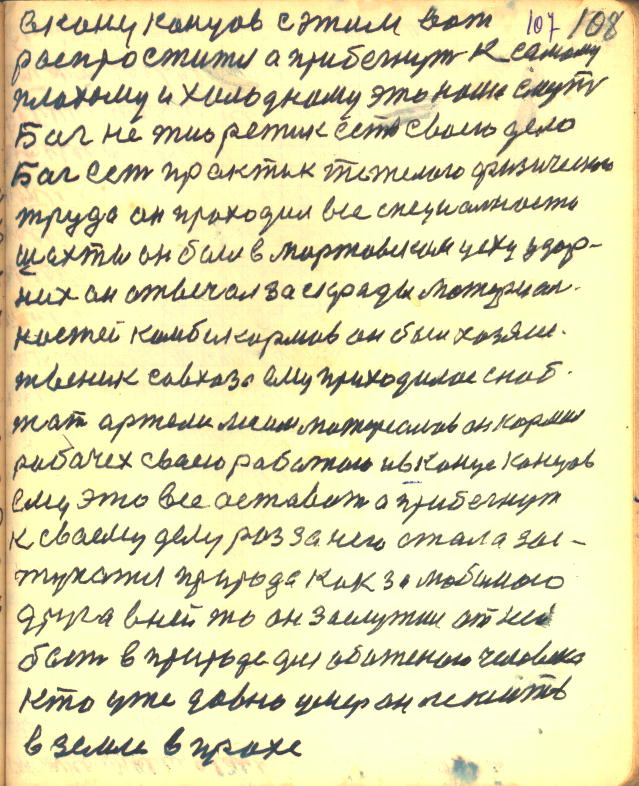 вкону концов сэтим вот 107 108
роспроститя а прибегнут к самому
плохому и холодному это наш путь
Бог не тиоретик есть своего дела
Бог ест практик тежолого физического
труда он проходил все специальности
шахты он был в мартовском цеху удар-
ник он отвечал за склады материал-
ностей комбикормов он был хозяис-
твеник совхоза ему приходилос снаб-
жат артели лесом материалов он кормил
рабочех своею работаю и в конце концов
ему это все оставит а прибегнут
к своему делу раз за него стала зас-
тупатя природа как за любимого
друга в ней то он заслужил от неё
быт в природе для обиженого человека
кто уже давно умер он лежить
в земле в прахе